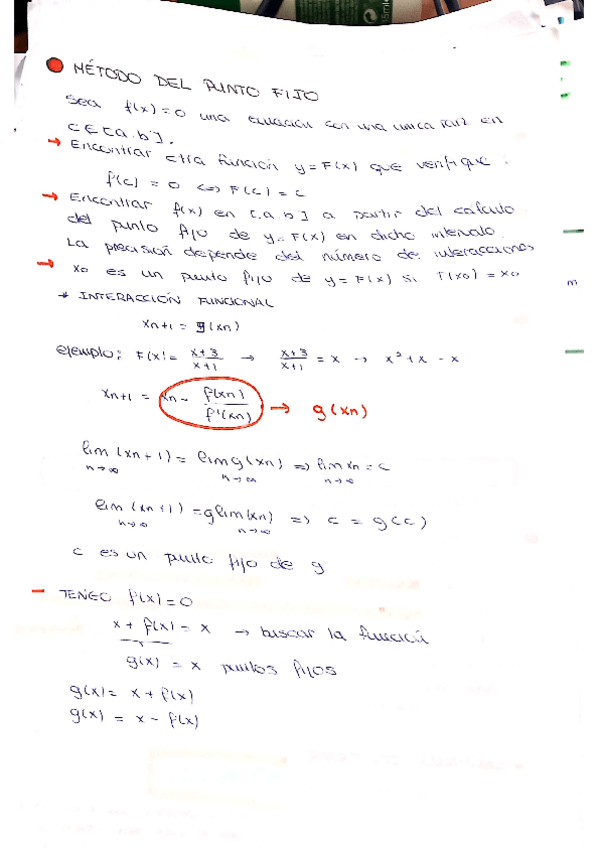 MÉTODO DEL PUNTO FIJO
Sea f(x)=0 una ecuación con una única raíz en
c ∈ [a,b].
→ Encontrar otra función y=F(x) que verifique:
f(c) = 0 <=> F(c) = c
→ Encontrar f(x) en [a,b] a partir del cálculo
del punto fijo de y=F(x) en dicho intervalo.
La precisión depende del número de interacciones
→ x0 es un punto fijo de y=F(x) si F(x0) = x0
* INTERACCIÓN FUNCIONAL
xn+1 = g(xn)
ejemplo: F(x) = x+3/x+1 → x+3/x+1 = x → x²+x - x
xn+1 = xn - f(xn)/f'(xn) → g(xn)
lim (xn+1) = lim g(xn) => lim xn = c
n→∞ n→∞ n→∞
lim (xn+1) = g lim(xn) => c = g(c)
n→∞ n→∞
c es un punto fijo de g
- TENGO f(x)=0
x + f(x) = x → buscar la función
g(x) = x puntos fijos
g(x) = x + f(x)
g(x) = x - f(x)
m